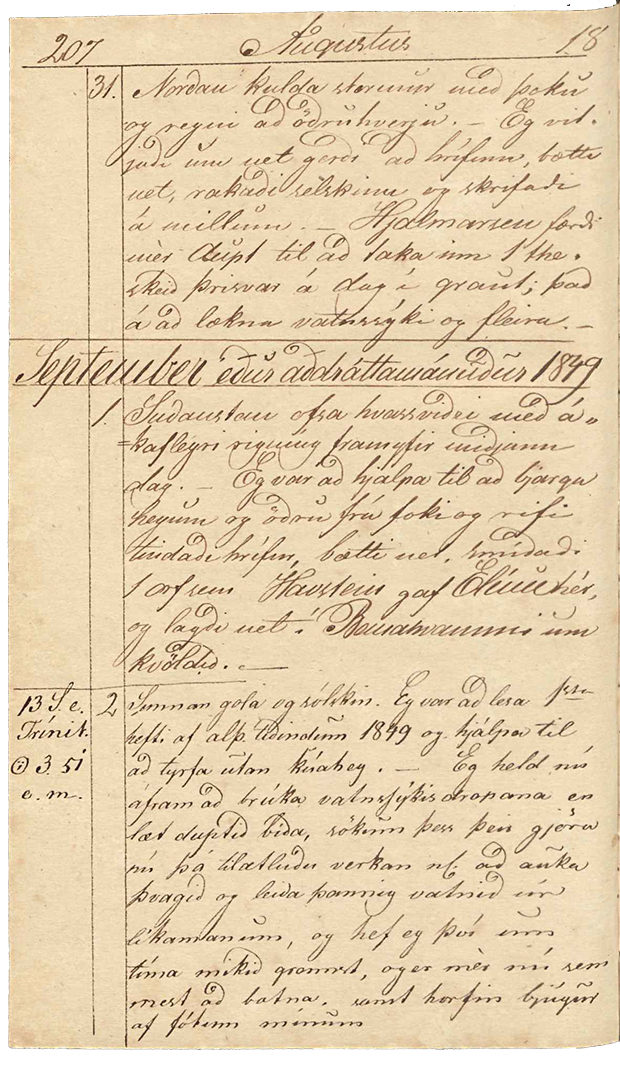 207 Augustus 18
31. Nordan kulda stormur med þoku
og regni ad ödruhverju. – Eg vit-
jadi um net, gerdi ad hrífum, bætti
net, rakadi sélskinn og skrifadi
á millum. – Hjalmarsen færdi
mèr dupt til ad taka inn 1 the-
skeid þrisvar á dag í graut; þad
á ad lækna vatnssýki og fleira. –
September edur addráttamánudur 1849
1. Sudaustan ofsa hvassvidri med á-
=kaflegri rigníng framyfir midjann
dag. – Eg var ad hjálpa til ad bjarga
heyum og ödru frá foki og rifi
tindadi hrífur, bætti net, smídadi
1 orf sem Havstein gaf Elínu hér,
og lagdi net í um
kvöldid. –
13 S. e. 2 Sunnan gola og sólskin. Eg var ad lesa 1sta
Trínit. hefti af alþ. tídindum 1849 og hjálpa til
3. 51 ad tyrfa utan kúahey. – Eg held nú
e. m. áfram ad brúka vatnssýkisdropana en
læt duptid bída, sökum þess þeir gjöra
nú þá tilætludu verkan nl. ad auka
þvagid og leida þannig vatnid úr
líkamanum, og hef eg því um
tíma mikid grennst, og er mèr nú sem
mest ad batna, samt horfin bjúgur
af fótum mínum